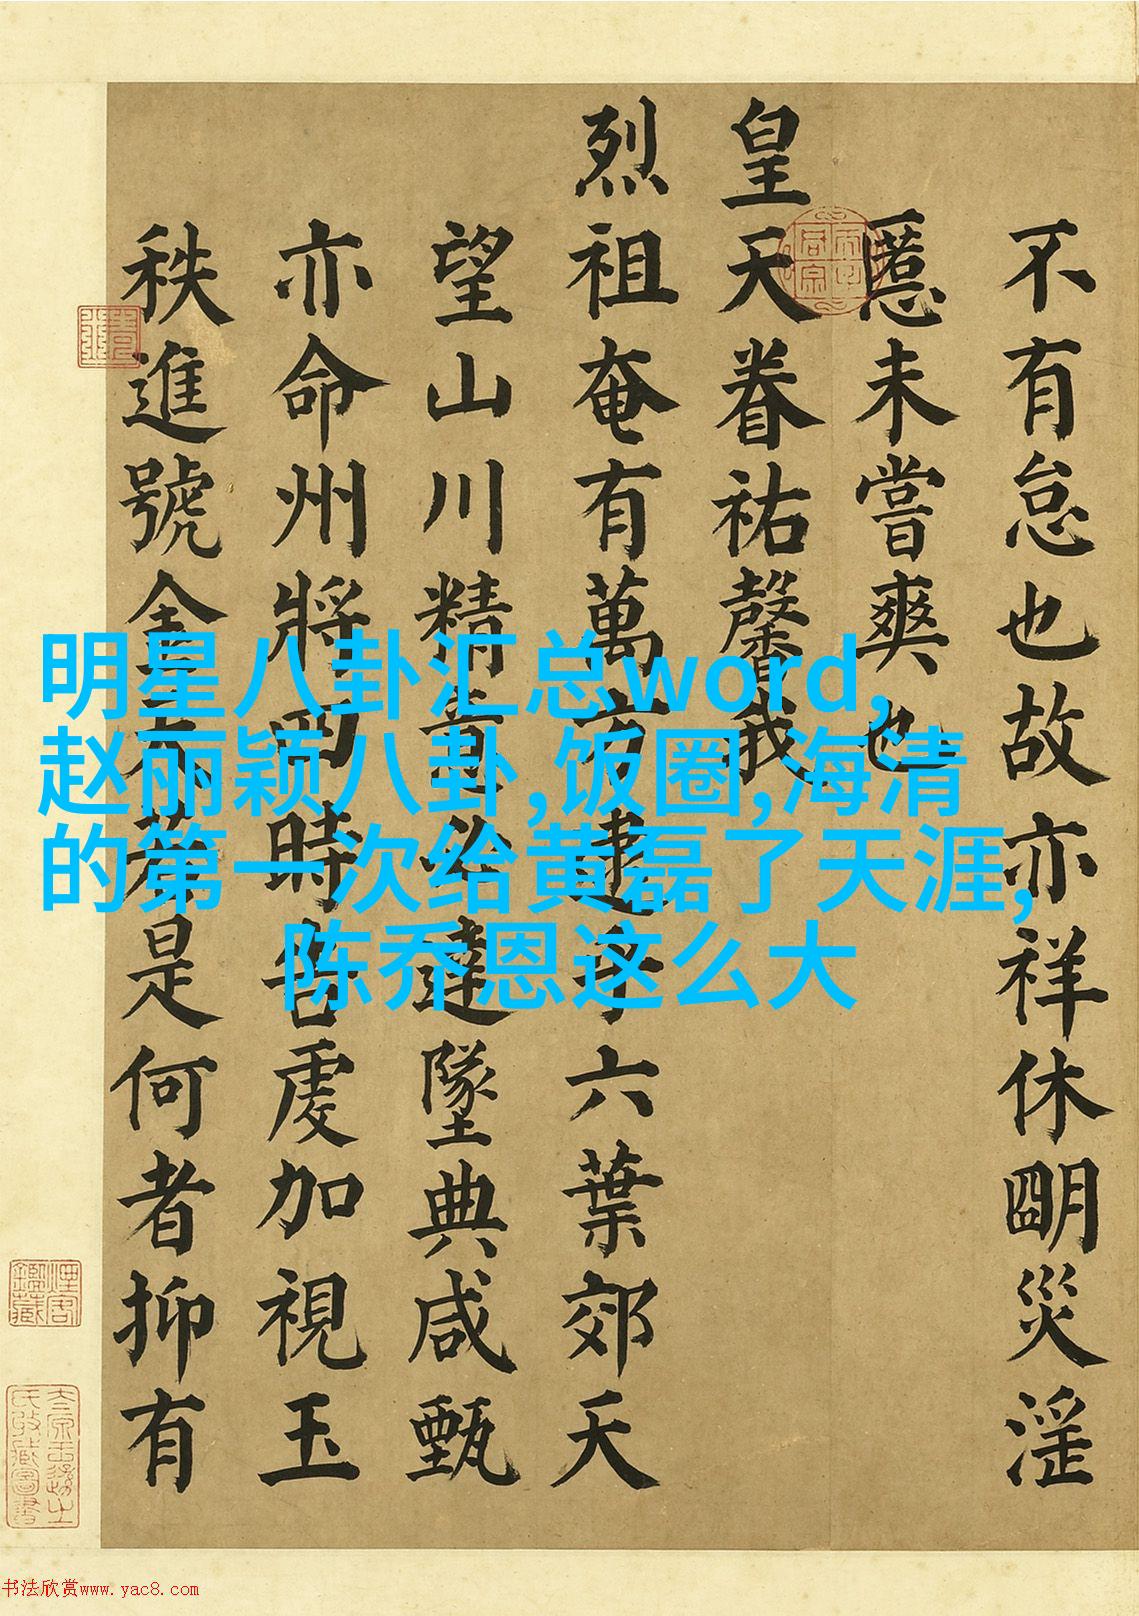 不有怠也故亦祥休明災淫
慝未嘗爽也
皇天眷祐馨我
烈祖奄有萬方建乎六葉郊天
望山川精意必達墜典咸甄
亦命州將四時告虔加視王
秩進號金天若是何者抑有
明星八卦汇总word,
赵丽颖八卦,饭圈,海清
的第一次给黄磊了天涯,
陈乔恩这么大
书法欣赏www.yac8.com